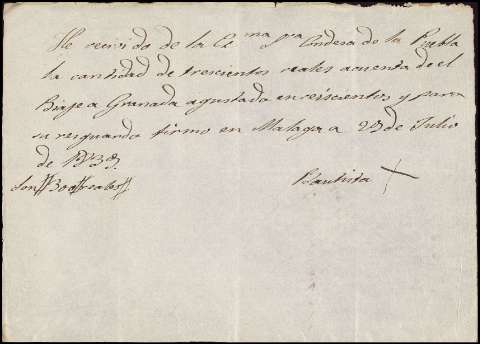 He recivido de la Ce ma Sra Condesa de la Puebla
la cantidad de trescientos reales acuenta de el
Biaje a Granada agustado en reiscientos y para
su resguardo firmo en Malaga a 29 de Julio
de 1833.
Son 300 reales
Bautista